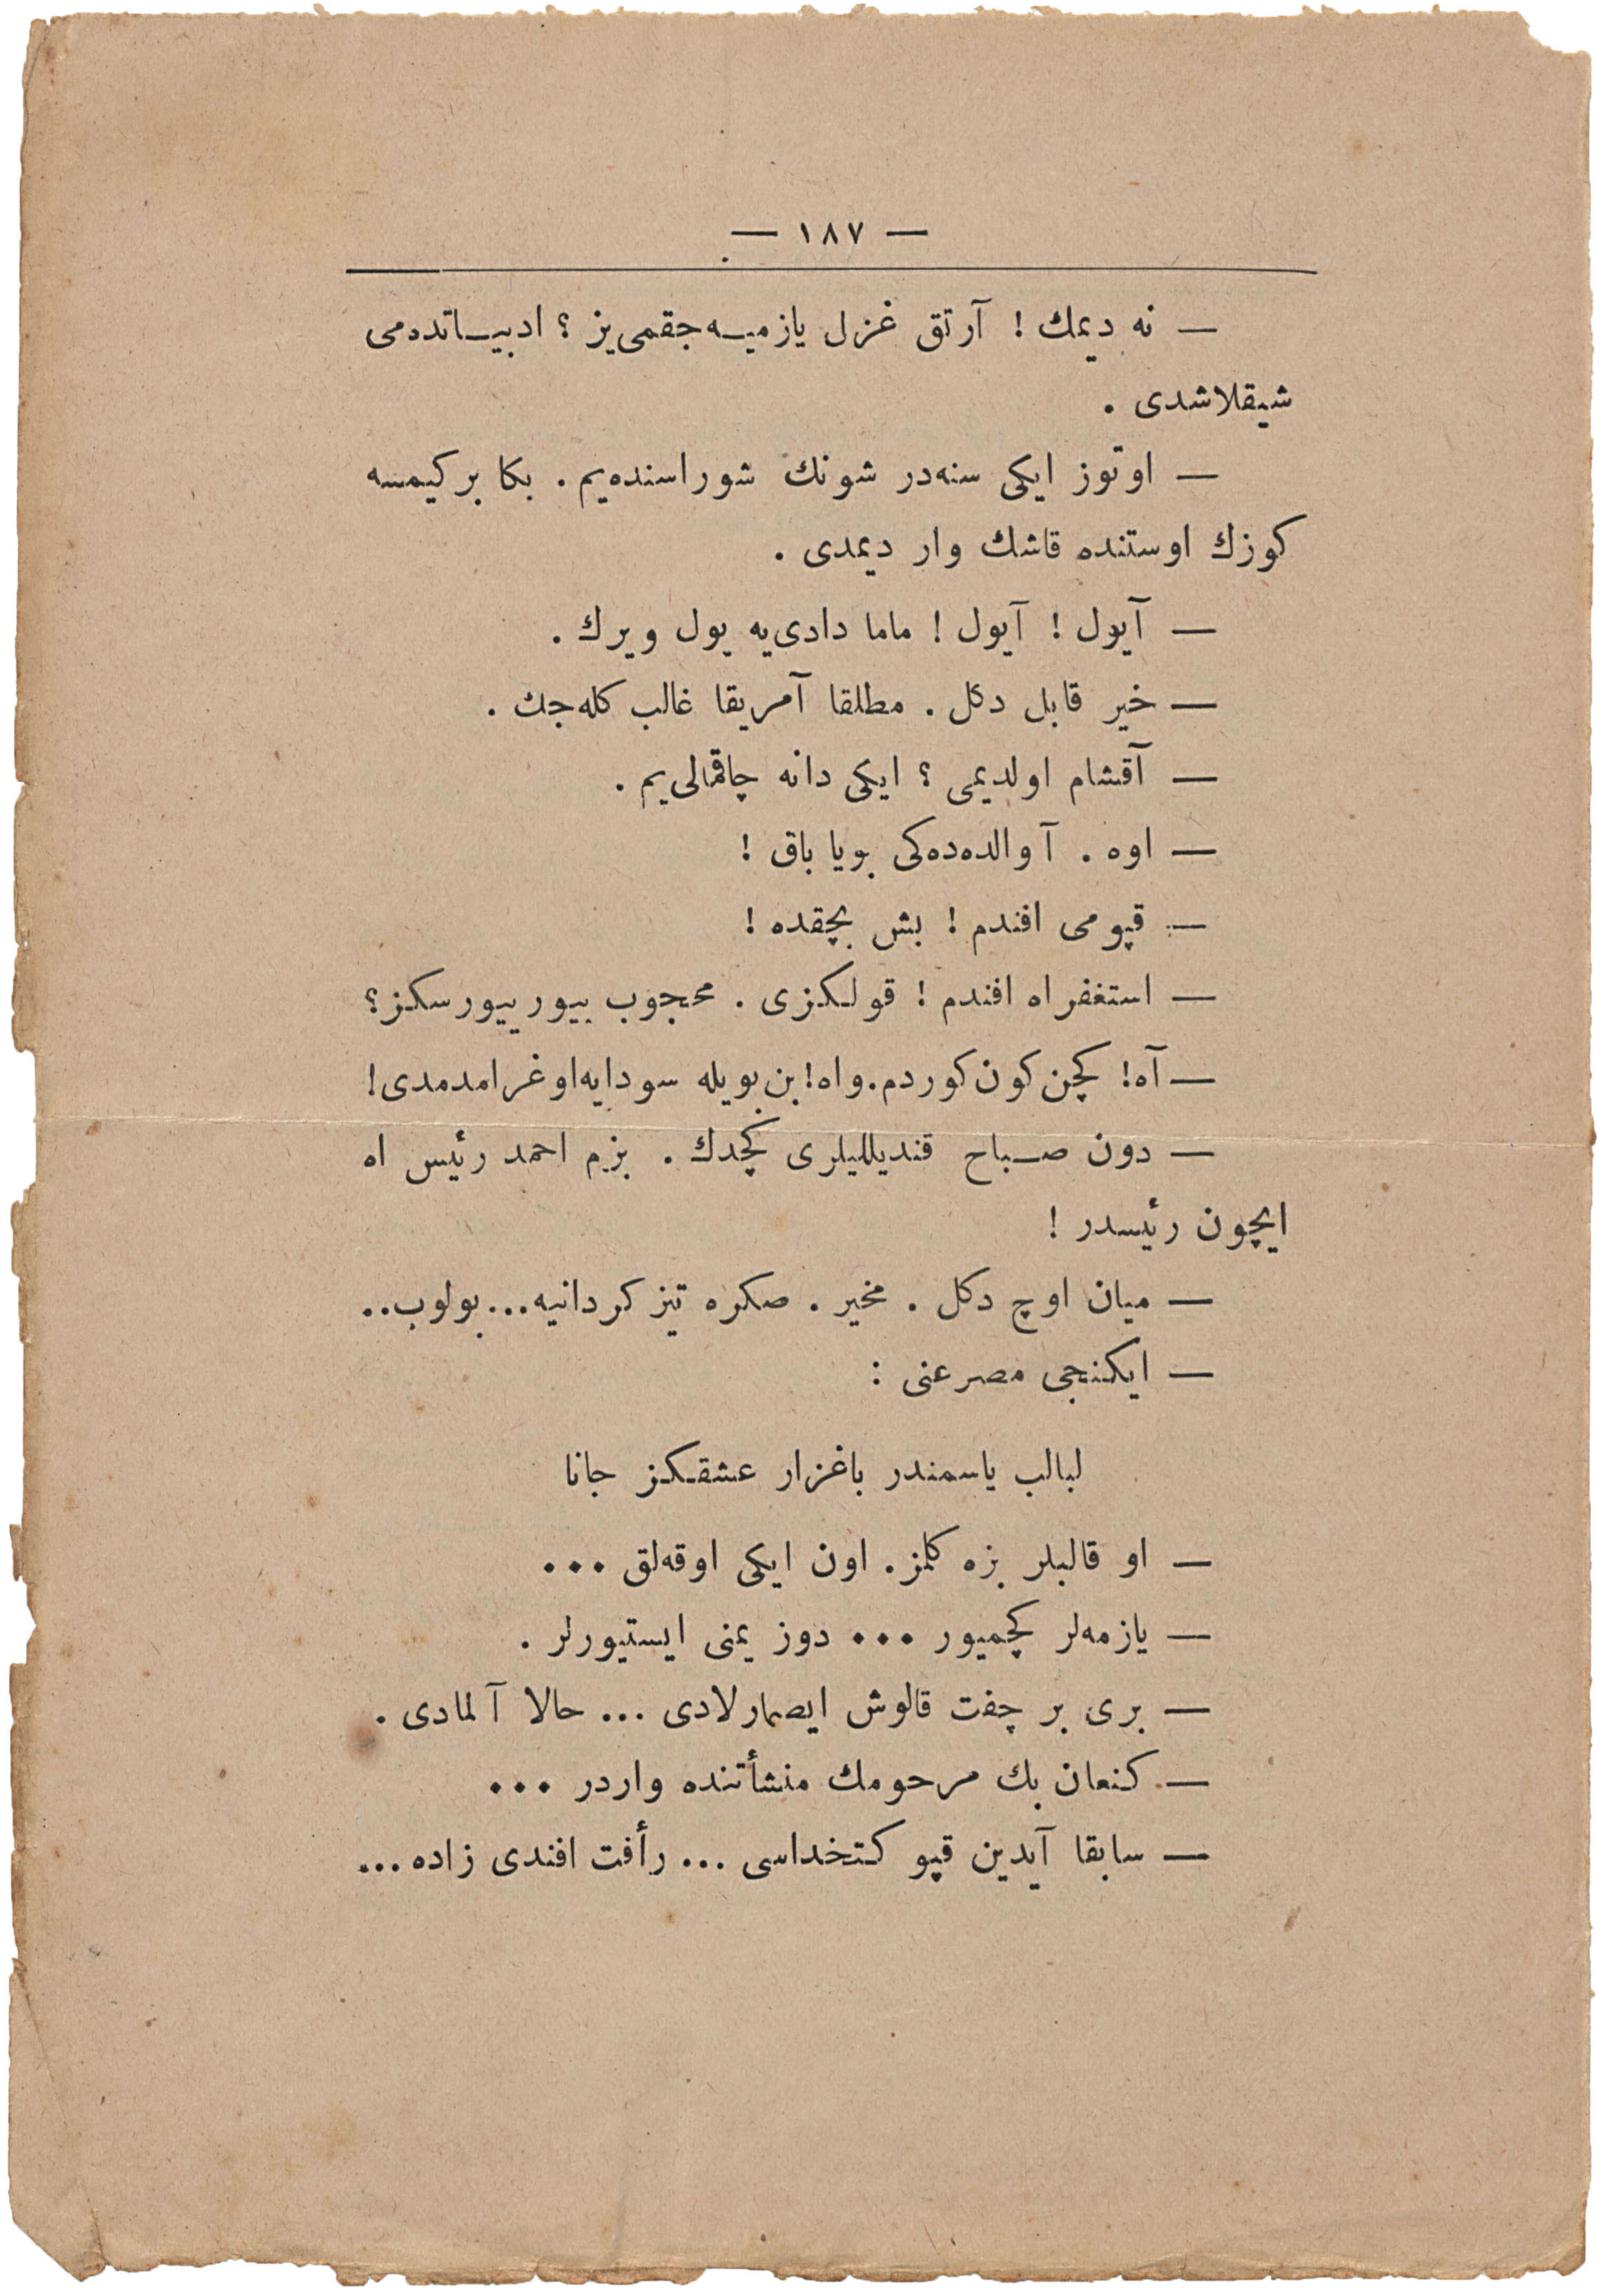 — ١٨٧ —
— نه دیمك ! آرتق غزل یازمیه‌جقمی‌یز ؟ ادبیاتده‌می
شیقلاشدی .
— اوتوز ایکی سنه‌در شونك شوراسنده‌یم . بکا بر کیمسه
کوزك اوستنده قاشك وار دیمدی .
— آیول ! آیول ! ماما دادی‌یه یول ویرك .
— خیر قابل دکل . مطلقا آمریقا غالب کله‌جك .
— آقشام اولدیمی ؟ ایکی دانه چاقمالی‌یم .
— اوه . آ والده‌ده‌کی بویا باق !
— قپومی افندم ! بش بچقده !
— استغفراه افندم ! قولکزی . محجوب بیورییورسکز ؟
— آه ! کچن کون کوردم . واه ! بن بویله سودایه اوغرامدمدی !
— دون صباح قندیللیلری کچدك . بزم احمد رئیس اه
ایچون رئیسدر !
— میان اوچ دکل . مخیر . صکره تیز کردانیه... بولوب..
— ایکنجی مصرعنی :
لبالب یاسمندر باغزار عشقکز جانا
— او قالبلر بزه کلمز . اون ایکی اوقه‌لق ...
— یازمه‌لر کچمیور ... دوز یمنی ایستیورلر .
— بری بر چفت قالوش ایصمارلادی ... حالا آلمادی .
— کنعان بك مرحومك منشأتنده واردر ...
— سابقا آیدین قپو کتخداسی ... رأفت افندی زاده ...